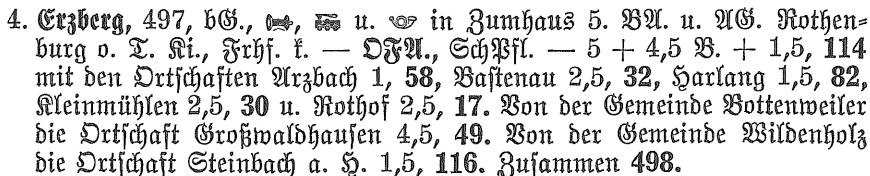 4. Erzberg, 497, bG., u. in Zumhaus 5. BA. u. AG. Rothen-
burg o. T. Ki., Frhf. k. — DFA., SchPfl. — 5 + 4,5 B. + 1,5, 114
mit den Ortschaften Arzbach 1, 58, Bastenau 2,5, 32, Harlang 1,5, 82,
Kleinmühlen 2,5, 30 u. Rothof 2,5, 17. Von der Gemeinde Bottenweiler
die Ortschaft Großwaldhausen 4,5, 49. Von der Gemeinde Wildenholz
die Ortschaft Steinbach a. H. 1,5, 116. Zusammen 498.